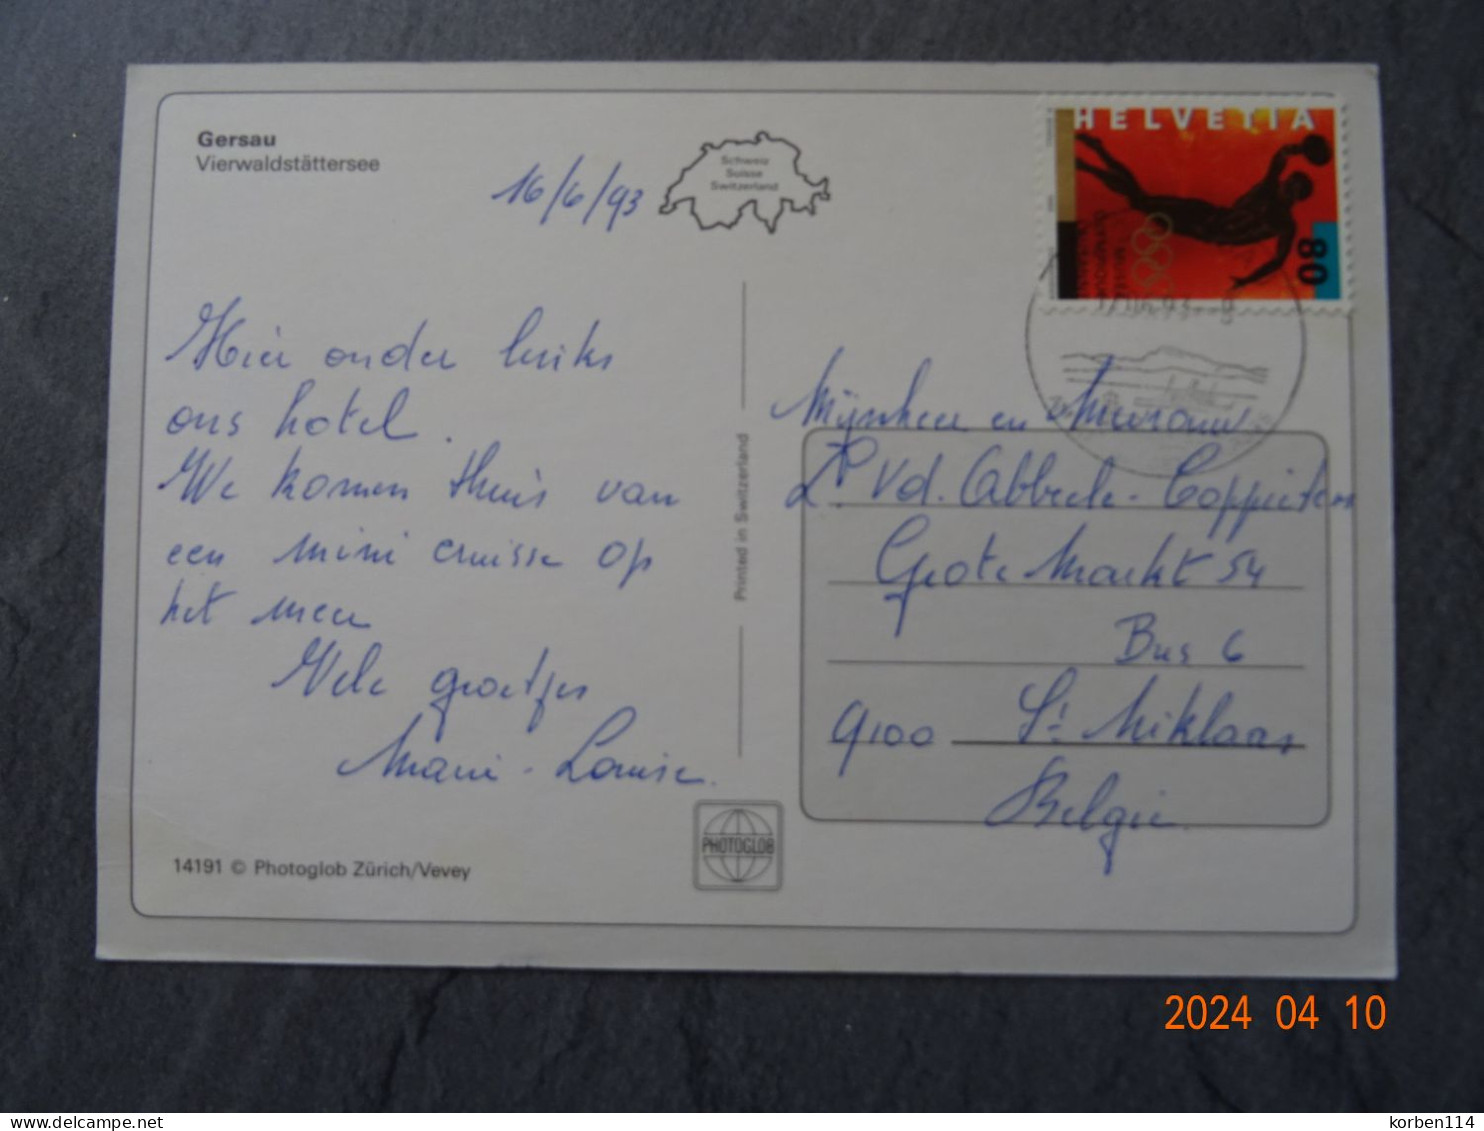 Gersau
Vierwaldstättersee
16/6/93
Schweiz
Suisse
Switzerland
HELVETIA
80
Hier onder links
ons hotel.
We komen thuis van
een mini cruisse op
het meer
Vele groetjes
Marie-Louise.
Printed in Switzerland
Mijnheer en Mevrouw
Vd. Abbeele-Coppieters
Grote Markt 54
Bus 6
9100 St Niklaas
Belgie
PHOTOGLOB
14191 © Photoglob Zürich/Vevey
2024 04 10
delcampe.net
korben114